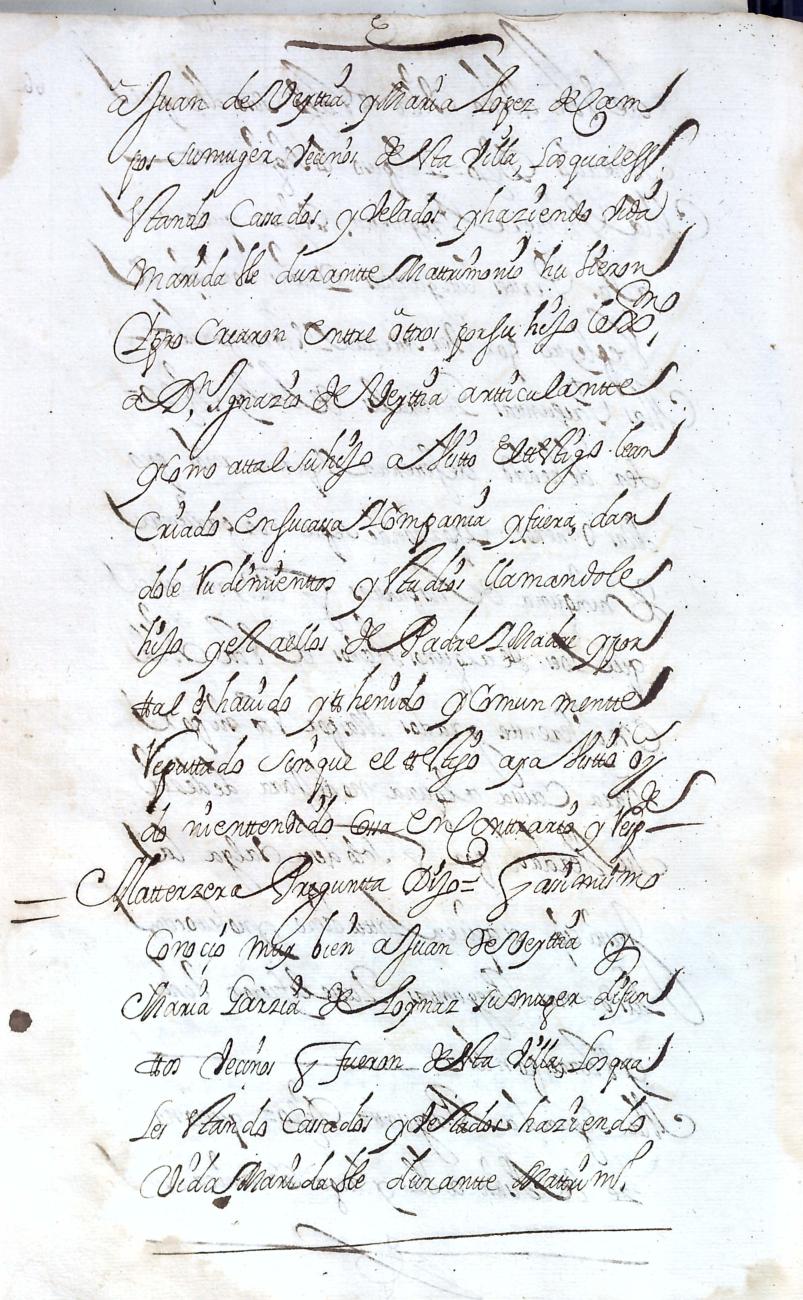 â Juan de Verttiâ y Maria Lopez de Cam
pos su muger vecinos de Esta Villa, Los quales
Estando Casados y Velados y haziendo vida
Maridable durantte Mattrimonio hubieron
y Procrearon entre ôtros por su hijo lexmo
a Dn Ignazio de Verttia articulantte
y Como attal su hijo a Visto el testtigo lean
Criado en su cassa y Compania y fuera, dan
dole Vudimientos y Studios llamandole
hijo y el a ellos de Padre y Madre y por
ttal es havido y tthenido y Comun mentte
Reputtado sin que el testigo aya Vistto oy
do ni enttendido Cossa en Conttrario y Resp de
A la tterzera Pregunta Dijo = q asimismo
Conoció muy bien a Juan de Verttia y
Maria Garzia de Logniz su muger difun
ttos vecinos q fueron de Esta Villa, Los qua
Les Estando Casados y Velados haziendo
Vida Maridable durantte Mattrimo.